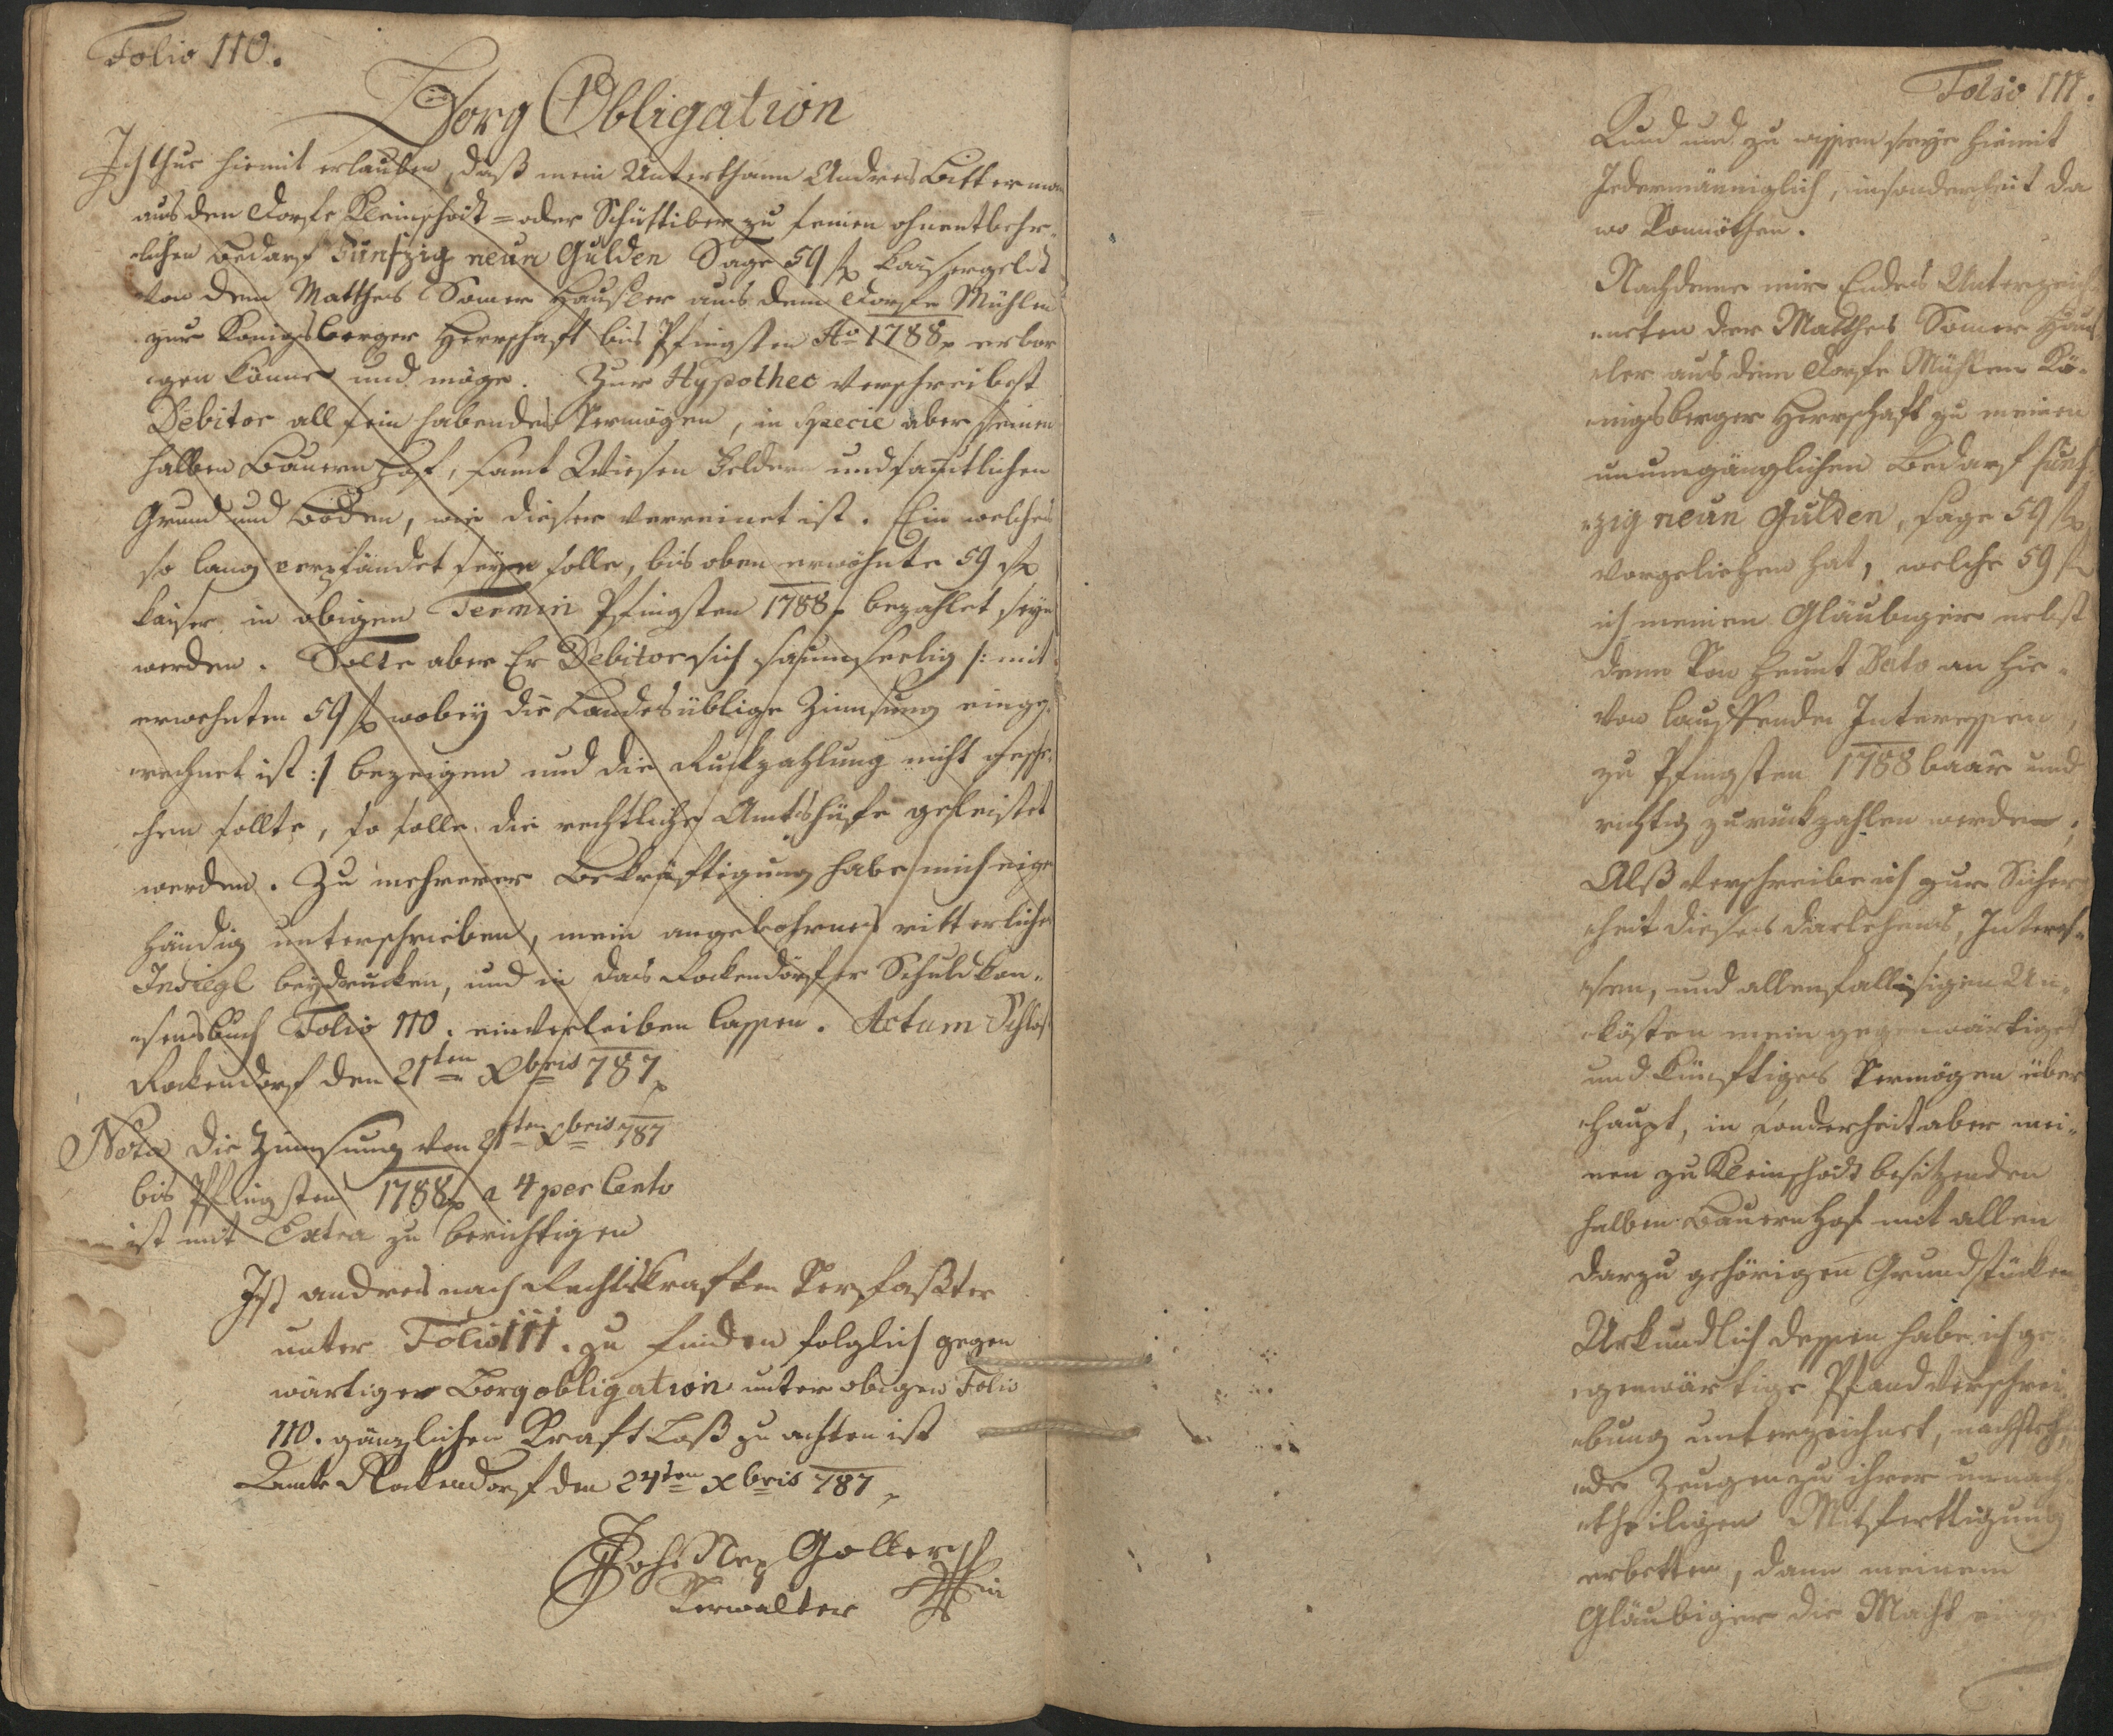 Folio 110.
Borg Obligation
Ich thue hiemit erlauben, daß mein Unterthann Andres Bitterman
aus den Dorfe Kleinschöit= oder Schüttiber zu seinen ohnentbehr-
lichen Bedarf Fünfzig neün Gulden Sage 59 f Kaisergeldt
von dem Matthes Somer Häußler aus dem Dorfe Mühlen
zur Königsberger Herrschaft bis Pfingsten Ao 1788 erbor
gen könne und möge. Zur Hypothec verschreibest
Debitor all sein habendes Vermögen, in Specie aber seinen
halben Bauern Hof, samt Wiesen Feldern und samtlichen
Grund und Boden, wie dieser vereinet ist. Ein welches
so lang verpfändet seyn solle, bis oben erwöhnte 59 f
Kaiser in obigen Termin Pfingsten 1788 bezahlet seyn
werden. Solte aber Er Debitor sich saumseelig /: mit
erwehnten 59 f wobey die Landesüblige Zinnsung einge-
rechnet ist :/ bezeigen und die Ruckzahlung nicht gesche-
hen sollte, so solle die rechtliche Amtshülfe geleistet
werden. Zu mehrerer Bekräftigung habe mich eigen
händig unterschrieben, mein angebohrnes ritterliches
Insiegl beydrucken, und in das Rockendörfer Schuld kon-
sensbuch Folio 110. einverleiben lassen. Actum Schloß
Rockendorf den 21ten Xbris 787
Nota Die Zinnsung von 21ten Xbris 787
bis Pfingsten 1788 a 4 per Cento
ist mit Extra zu berichtigen
Ist andres nach Rechtskraften Verfaßter
unter Folio 111. zu finden folglich gegen
wärtiger Borgobligation unter obigen Folio
110. gänzlichen Kraft Loß zu achten ist
Amt Rockendorf den 24ten Xbris 787
Joh Nep Goller
Verwalter
Folio 111.
Kund und zu wissen seye hiemit
Jedermänniglich, insonderheit da
wo Vonnöthen.
Nachdeme mir Endes Unterzeich-
neten der Matthes Somer Häus
ler aus dem Dorfe Mühlen Kö-
nigsberger Herrschaft zu meinen
unumgänglichen Bedarf fünf
zig neün Gulden, sage 59 f
vorgeliehen hat, welche 59 f
ich meinen Gläubiger nebst
denn Von heunt Dato an hie-
von lauffenden Interessen,
zu Pfingsten 1788 baar und
richtig zurückzahlen werde,
Alß verschreibe ich zur Sicher
heit dieses Darlehens, Interes-
sen, und allenfallsigen Un-
kösten mein gegenwärtiges
und künftiges Vermögen über
haupt, in sonderheit aber mei-
nen zu Kleinschöit besitzenden
halben Bauern Hof mit allen
darzu gehörigen Grundstücken
Urkundlich dessen habe ich ge-
genwärtige Pfandverschrei-
bung unterzeichnet, nachsteh-
nde Zeugen zu ihrer unnach-
theiligen Mitfertigung
erbetten, dann meinem
Gläubiger die Macht einge